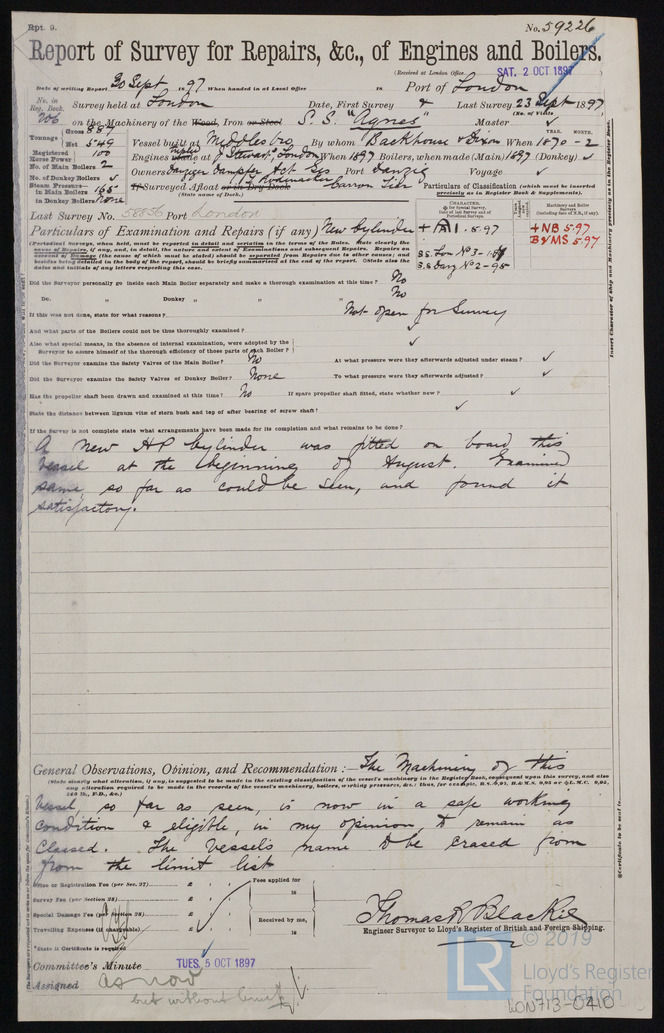 Rpt. 9.
No. 59226
Report of Survey for Repairs, &c., of Engines and Boilers.
(Received at London Office SAT. 2 OCT 1897)
Date of writing Report 30 Sept 1897 When handed in at Local Office 18 Port of London
No. in Reg. Book. 206 Survey held at London Date, First Survey & Last Survey 23 Sept 1897
(No. of Visits
on the Machinery of the Wood, Iron or Steel S.S. "Agnes" Master
Tonnage Gross 889 Net 549
Vessel built at Middlesbro By whom Backhouse & Dixon When 1870-2
YEAR. MONTH.
Registered Horse Power 100
Engines made at J Stewart, London When 1897 Boilers, when made (Main) 1897 (Donkey)
No. of Main Boilers 2
Owners Danziger Dampfer Act Ges Port Danzig Voyage
No. of Donkey Boilers
Steam Pressure in Main Boilers 165
in Donkey Boilers None
If Surveyed Afloat or in Dry Dock
(State name of Dock.)
Particulars of Classification (which must be inserted precisely as in Register Book & Supplements).
Last Survey No. 58856 Port London
Particulars of Examination and Repairs (if any) New Cylinder
CHARACTER.
Machinery and Boiler Surveys
+ NB 5.97
B&MS 5.97
(Periodical Surveys, when held, must be reported in detail and seriatim in the terms of the Rules. State clearly the cause of Repairs, if any, and, in detail, the nature and extent of Examinations and subsequent Repairs. Repairs on account of Damage (the cause of which must be stated) should be separated from Repairs due to other causes; and besides being detailed in the body of the report, should be briefly summarised at the end of the report. (State also the dates and initials of any letters respecting this case.
Did the Surveyor personally go inside each Main Boiler separately and make a thorough examination at this time? No
Do. " Donkey " " " No
If this was not done, state for what reasons? Not open for Survey
And what parts of the Boilers could not be thoroughly examined?
Also what special means, in the absence of internal examination, were adopted by the Surveyor to assure himself of the thorough efficiency of those parts of each Boiler?
Did the Surveyor examine the Safety Valves of the Main Boiler? No At what pressure were they afterwards adjusted under steam?
Did the Surveyor examine the Safety Valves of Donkey Boiler? None To what pressure were they afterwards adjusted?
Has the propeller shaft been drawn and examined at this time? No If spare propeller shaft fitted, state whether new?
State the distance between lignum vitæ of stern bush and top of after bearing of screw shaft?
If the Survey is not complete state what arrangements have been made for its completion and what remains to be done?
A new HP Cylinder was fitted on board this
vessel at the beginning of August. Examined
same, so far as could be seen, and found it
satisfactory.
General Observations, Opinion, and Recommendation:— The Machinery of this
(State clearly what alteration, if any, is suggested to be made in the existing classification of the vessel's machinery in the Register Book, consequent upon this survey, and also any alteration required to be made in the records of the vessel's machinery, boilers, working pressures, &c.
Vessel, so far as seen, is now in a safe working
condition & eligible, in my opinion, to remain as
Classed. The vessels name to be erased from
from the limit list
Entry or Registration Fee (per Sec. 27) £ : : Fees applied for 18
Survey Fee (per Section 28) £ : :
Special Damage Fee (per Section 28) £ : : Received by me, 18
Travelling Expenses (if chargeable) £ : :
Thomas R Blackie
Engineer Surveyor to Lloyd's Register of British and Foreign Shipping.
*State if Certificate is required
Committee's Minute TUES. 5 OCT 1897
Assigned as now
but without limit
© 2019
LR
Lloyd's Register
Foundation
LON713-0410